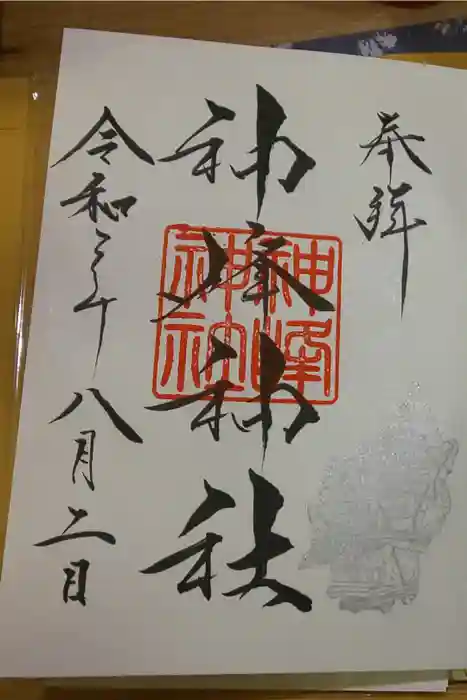 奉拝
神峰神社
神峰神社
令和三年八月二日